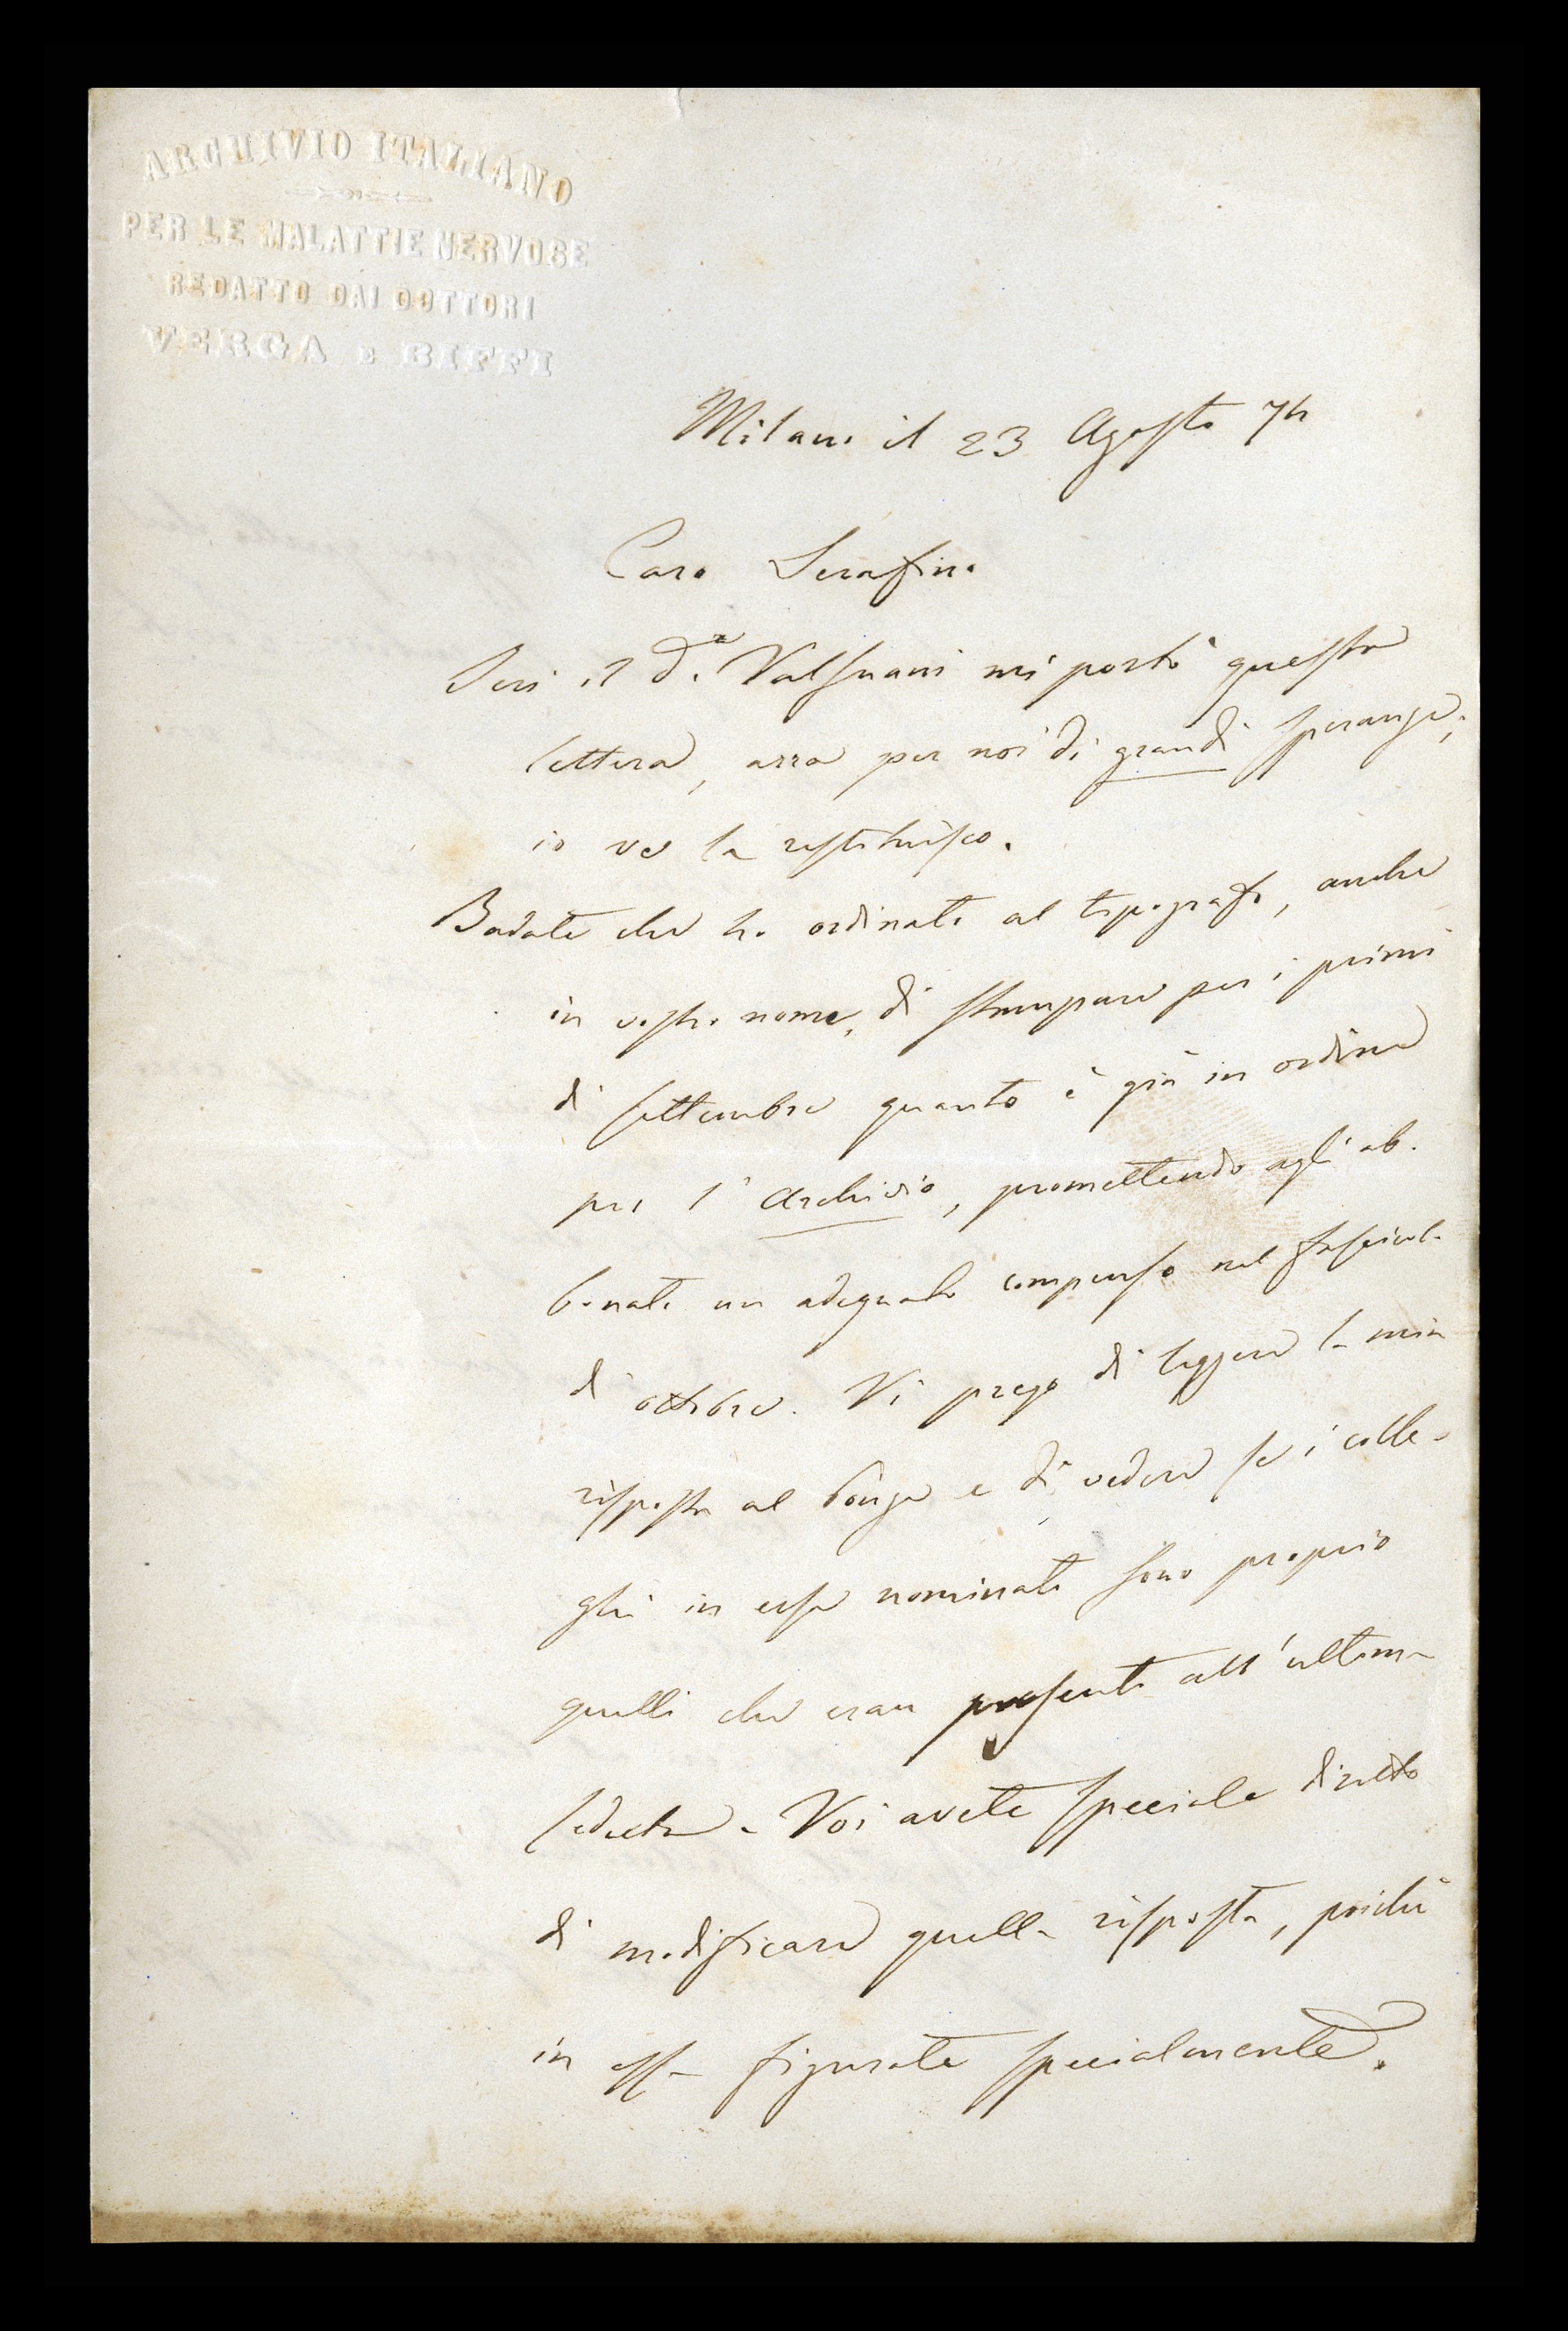 ARCHIVIO ITALIANO
PER LE MALATTIE NERVOSE
REDATTO DAI DOTTORI
VERGA E BIFFI
Milano il 23 Agosto 74
Caro Serafino
Ieri il Dr. Valsuani mi portò questa
lettera, arra per noi di grandi speranze;
io ve la restituisco.
Badate che ho ordinato al tipografo, anche
in vostro nome, di stampare per i primi
di settembre quanto è già in ordine
per l'Archivio, promettendo agli ab-
bonati un adeguato compenso nel fascicolo
di ottobre. Vi prego di leggere la mia
risposta al Bonze e di vedere se i colle-
ghi in essa nominati sono proprio
quelli che eran presenti all'ultima
seduta. Voi avete speciale diritto
di modificare quella risposta, poichè
in essa figurate specialmente.